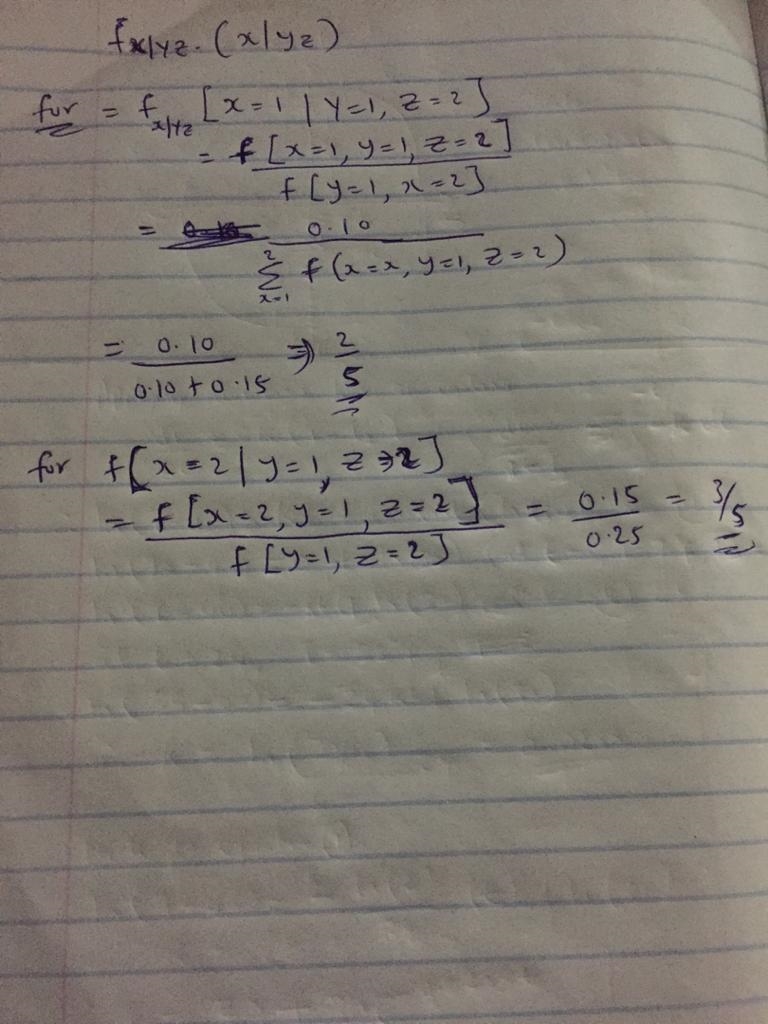 fx|yz. (x|yz)
for = f x|yz [x=1 | Y=1, Z=2]
= f [x=1, y=1, z=2]
f [y=1, x=2]
= 0.10
2 Σ x=1 f (x=x, y=1, z=2)
= 0.10 / 0.10+0.15 ⇒ 2/5
for f[x=2 | y=1, z=2]
= f [x=2, y=1, z=2] / f [y=1, z=2] = 0.15 / 0.25 = 3/5